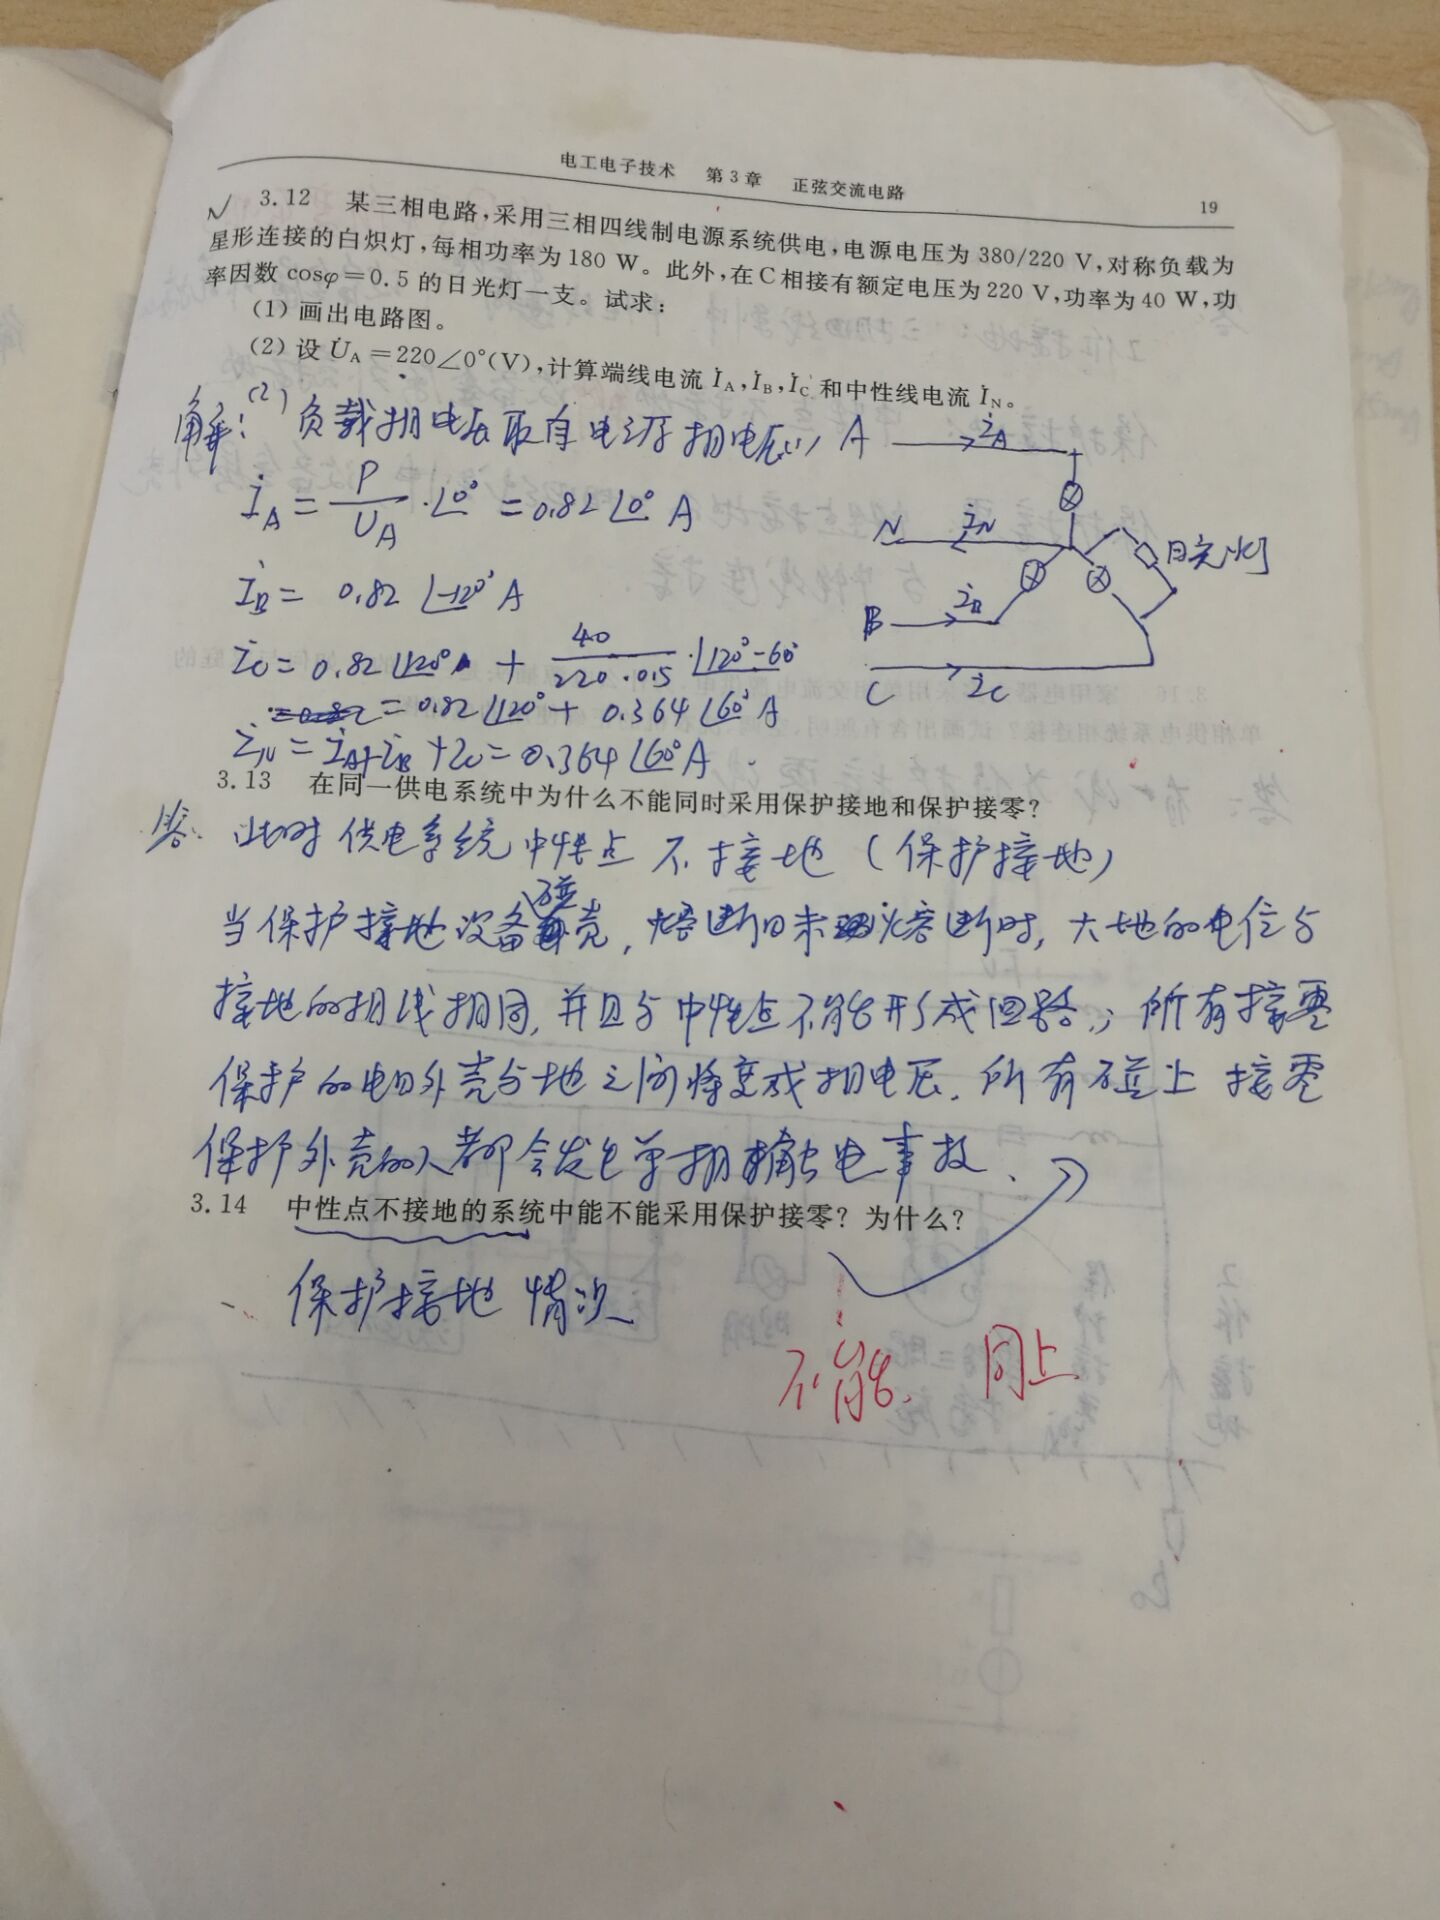 电工电子技术 第3章 正弦交流电路 19
√ 3.12 某三相电路,采用三相四线制电源系统供电,电源电压为380/220 V,对称负载为
星形连接的白炽灯,每相功率为180 W。此外,在C相接有额定电压为220 V,功率为40 W,功
率因数cosφ=0.5的日光灯一支。试求:
(1) 画出电路图。
(2) 设U̇A=220∠0°(V),计算端线电流İA,İB,İC和中性线电流İN。
解:(2) 负载相电压取自电源相电压∴
İA = P/UA · ∠0° = 0.82∠0° A
İB = 0.82 ∠-120° A
İC = 0.82∠120° + 40/220·0.5 · ∠120°-60°
= 0.82∠120° + 0.364∠60° A
İN = İA+İB+İC = 0.364∠60° A
A İA
N İN
日光灯
B İB
C İC
3.13 在同一供电系统中为什么不能同时采用保护接地和保护接零?
答: 此时供电系统中性点不接地(保护接地)
当保护接地设备碰壳,熔断器未熔断时,大地的电位与
接地的相线相同,并且与中性点不能形成回路,;所有接零
保护的电器外壳与地之间将变成相电压.所有碰上接零
保护外壳的人都会发生单相触电事故.
3.14 中性点不接地的系统中能不能采用保护接零?为什么?
保护接地情况
不能. 同上